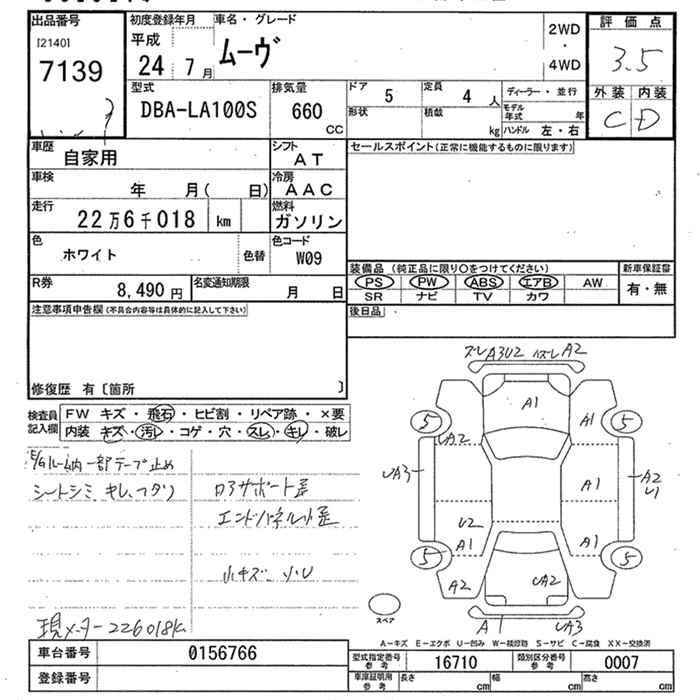 出品番号
[2140]
7139
初度登録年月
平成
24 7月
車名・グレード
ムーヴ
2WD
・
4WD
評価点
3.5
外装 内装
C D
型式
DBA-LA100S
排気量
660
CC
ドア
5
定員
4 人
形状
積載
kg
ディーラー・並行
モデル年式 年
ハンドル 左・右
車歴
自家用
シフト
AT
車検
年 月( 日)
冷房
AAC
走行
22万6千018 km
燃料
ガソリン
色
ホワイト
色替
色コード
W09
R券
8,490円
名変通知期限
月 日
セールスポイント(正常に機能するものに限ります)
装備品(純正品に限り○をつけてください)
PS PW ABS エアB AW
SR ナビ TV カワ
新車保証書
有・無
後日品
注意事項申告欄(不具合内容等は具体的に記入して下さい)
修復歴 有〔箇所 〕
検査員記入欄
FW キズ・飛石・ヒビ割・リペア跡・×要
内装 キズ・汚レ・コゲ・穴・スレ・キレ・破レ
E/Gルーム内一部テープ止め
シートシミ、キレ、コゲ
ロアサポート歪
エンドパネル小歪
小キズ、小U
現メーター226018km
車台番号
0156766
登録番号
ズレA3U2 ズレA2
A1
5
A1
5
UA2
UA3
A1
A2
U1
U2
A1
A1
5
5
A2
UA2
スペア
A1
UA3
A−キズ E−エクボ U−凹み W−補修跡 S−サビ C−腐食 XX−交換済
型式指定番号
参考
16710
類別区分番号
参考
0007
車庫証明用
参考
長さ cm
幅 cm
高さ cm